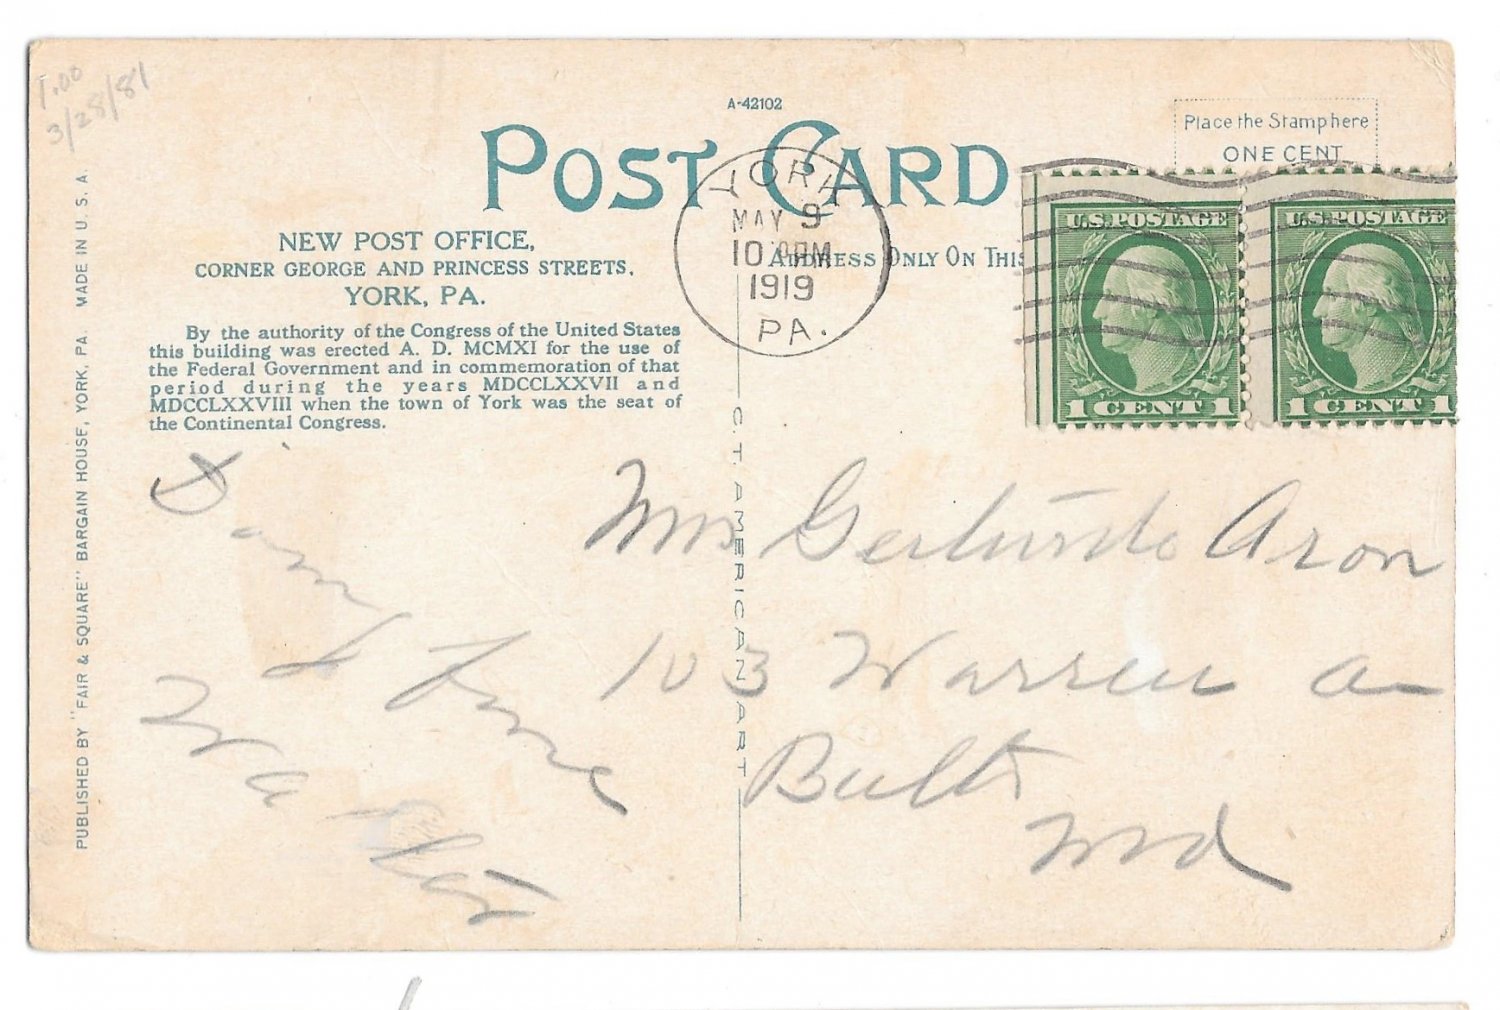 1.00
3/28/81
A-42102
POST CARD
Place the Stamp here
ONE CENT
YORK
MAY 9
10 PM
1919
PA.
ADDRESS ONLY ON THIS
U.S. POSTAGE
1 CENT 1
U.S. POSTAGE
1 CENT 1
NEW POST OFFICE,
CORNER GEORGE AND PRINCESS STREETS,
YORK, PA.
By the authority of the Congress of the United States
this building was erected A. D. MCMXI for the use of
the Federal Government and in commemoration of that
period during the years MDCCLXXVII and
MDCCLXXVIII when the town of York was the seat of
the Continental Congress.
PUBLISHED BY "FAIR & SQUARE" BARGAIN HOUSE, YORK, PA. MADE IN U. S. A.
C. T. AMERICAN ART
Mrs Gertrude Aron
103 Warren
Balt
Md